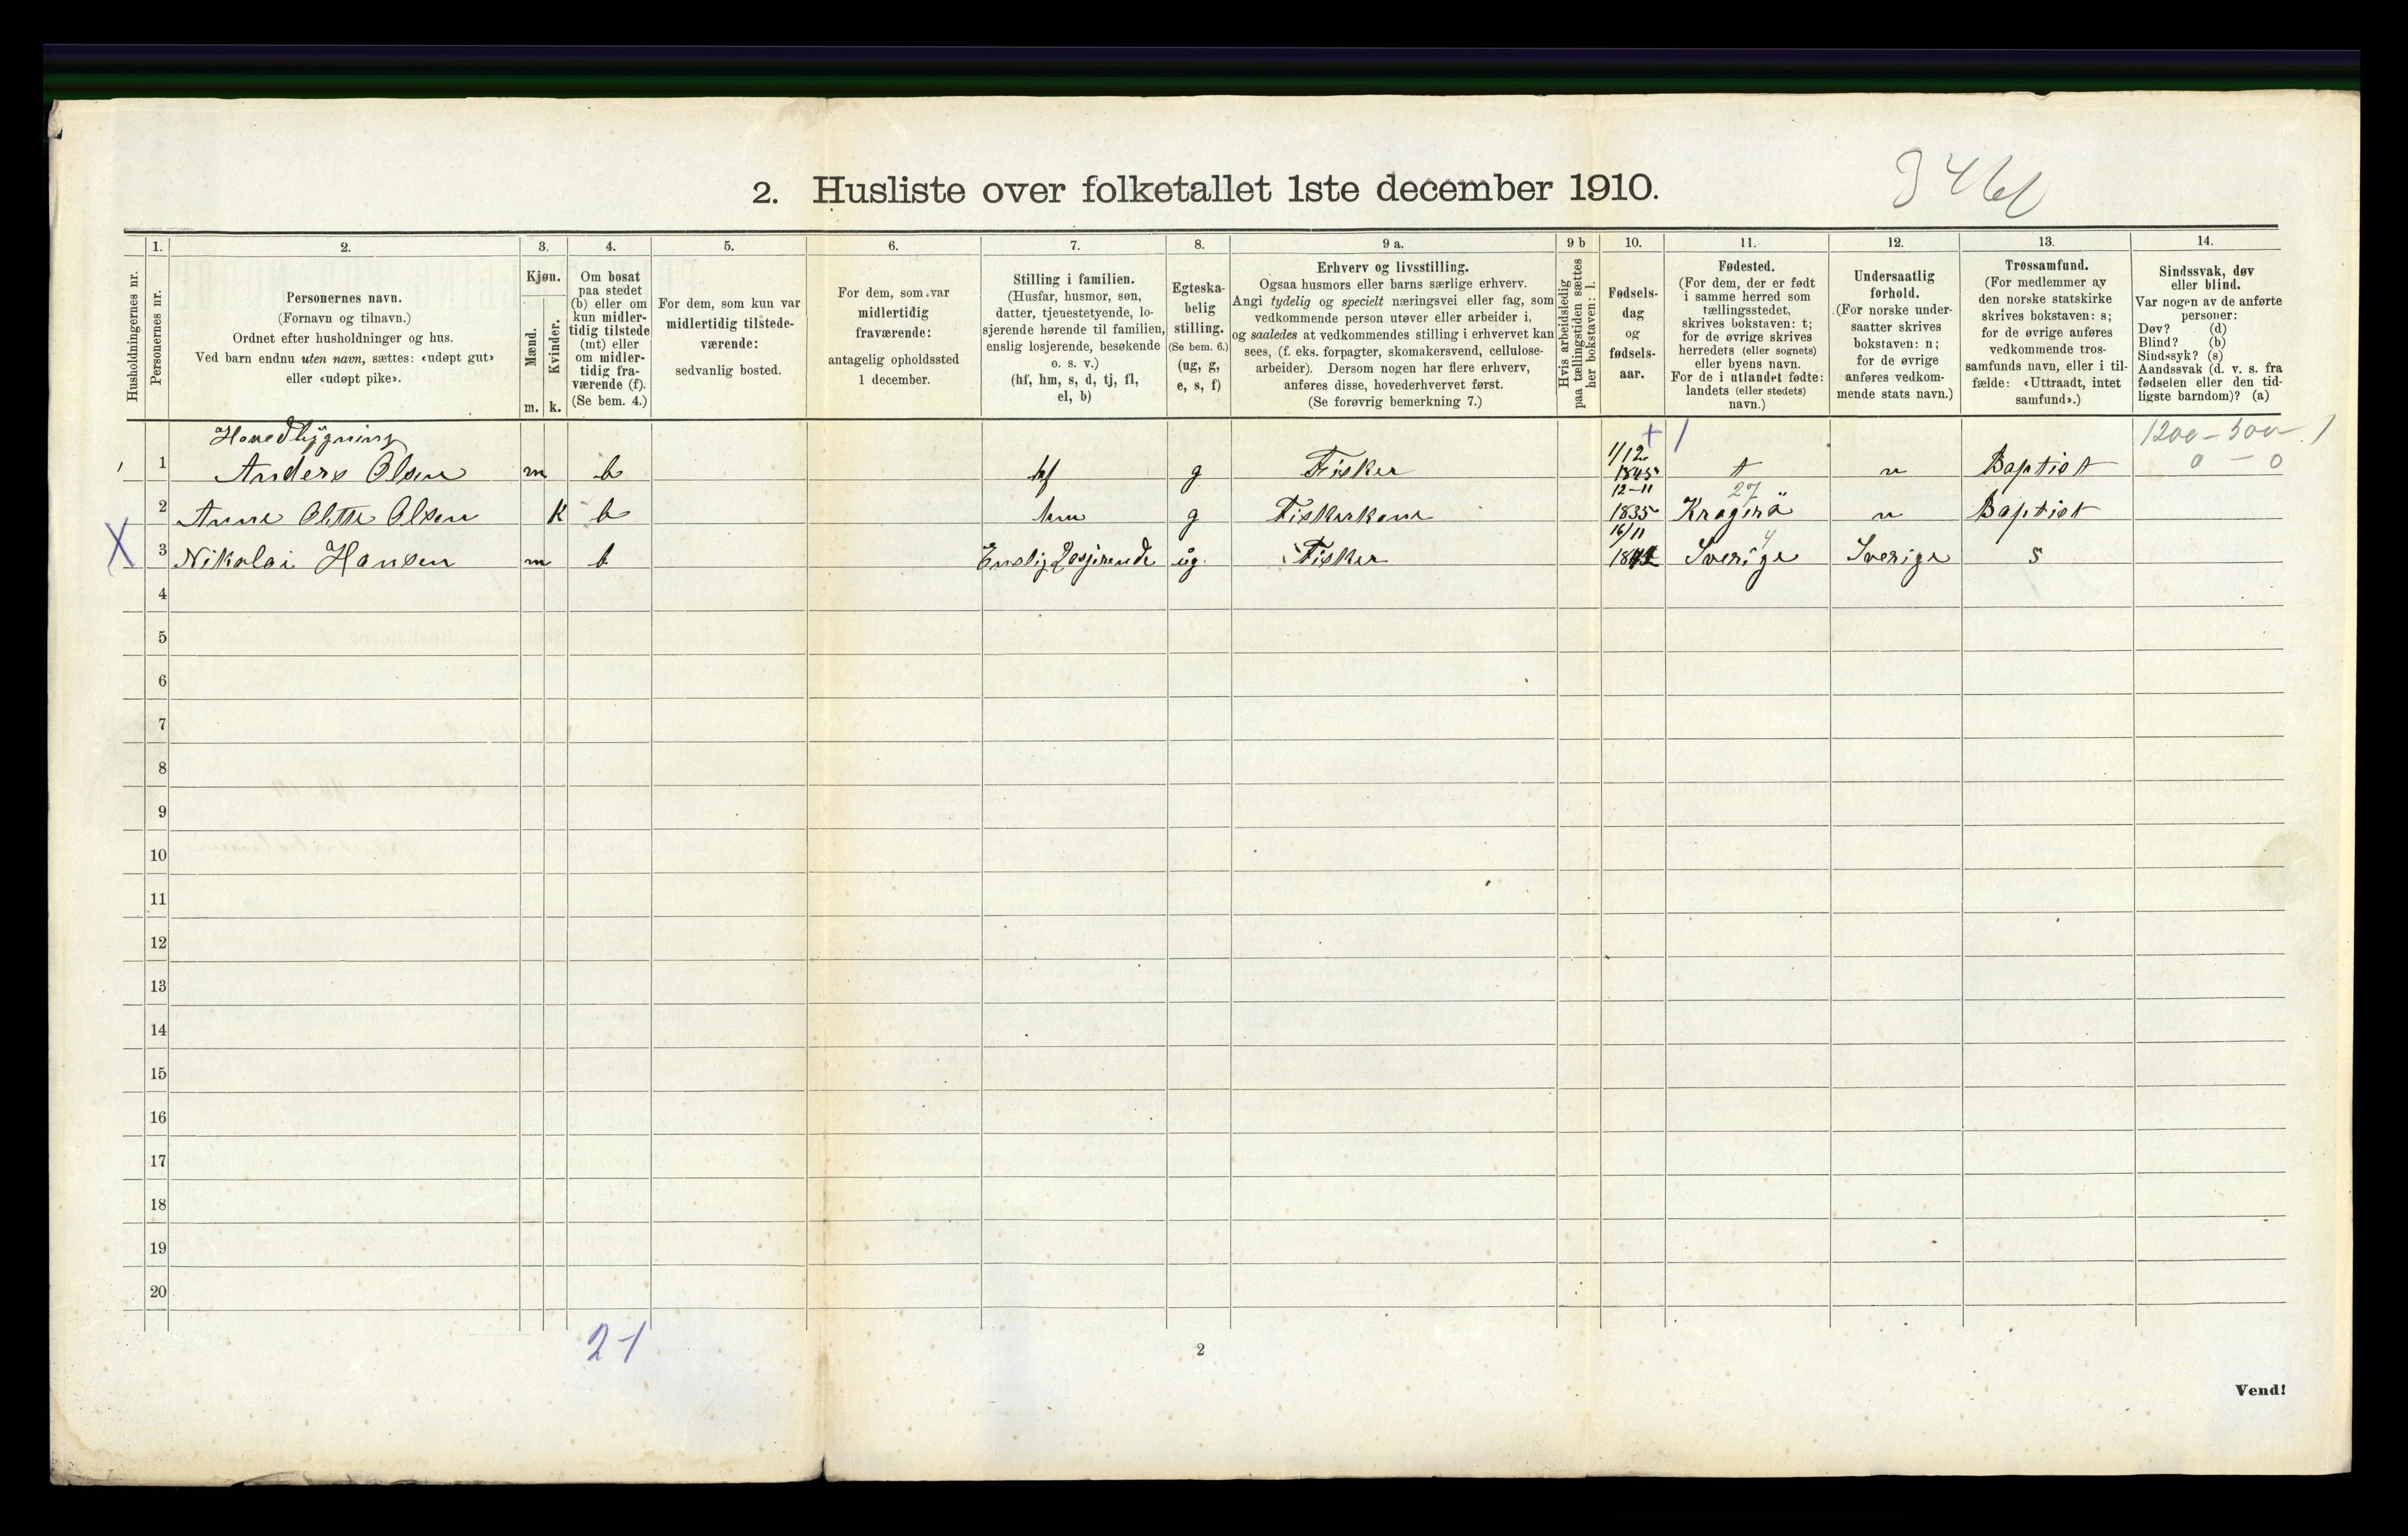 2. Husliste over folketallet 1ste december 1910.
Husholdningernes nr.
1.
Personernes nr.
2.
Personernes navn.
(Fornavn og tilnavn.)
Ordnet efter husholdninger og hus.
Ved barn endnu uten navn, sættes: «udøpt gut»
eller «udøpt pike».
3.
Kjøn.
Mænd.
Kvinder.
m. k.
4.
Om bosat
paa stedet
(b) eller om
kun midler-
tidig tilstede
(mt) eller
om midler-
tidig fra-
værende (f).
(Se bem. 4.)
5.
For dem, som kun var
midlertidig tilstede-
værende:
sedvanlig bosted.
6.
For dem, som var
midlertidig
fraværende:
antagelig opholdssted
1 december.
7.
Stilling i familien.
(Husfar, husmor, søn,
datter, tjenestetyende, lo-
sjerende hørende til familien,
enslig losjerende, besøkende
o. s. v.)
(hf, hm, s, d, tj, fl,
el, b)
8.
Egteska-
belig
stilling.
(Se bem. 6.)
(ug, g,
e, s, f)
9 a.
Erhverv og livsstilling.
Ogsaa husmors eller barns særlige erhverv.
Angi tydelig og specielt næringsvei eller fag, som
vedkommende person utøver eller arbeider i,
og saaledes at vedkommendes stilling i erhvervet kan
sees, (f. eks. forpagter, skomakersvend, cellulose-
arbeider). Dersom nogen har flere erhverv,
anføres disse, hovederhvervet først.
(Se forøvrig bemerkning 7.)
9 b
Hvis arbeidsledig
paa tællingstiden sættes
her bokstaven: l.
10.
Fødsels-
dag
og
fødsels-
aar.
11.
Fødested.
(For dem, der er født
i samme herred som
tællingsstedet,
skrives bokstaven: t;
for de øvrige skrives
herredets (eller sognets)
eller byens navn.
For de i utlandet fødte:
landets (eller stedets)
navn.)
12.
Undersaatlig
forhold.
(For norske under-
saatter skrives
bokstaven: n;
for de øvrige
anføres vedkom-
mende stats navn.)
13.
Trossamfund.
(For medlemmer av
den norske statskirke
skrives bokstaven: s;
for de øvrige anføres
vedkommende tros-
samfunds navn, eller i til-
fælde: «Uttraadt, intet
samfund».)
14.
Sindssvak, døv
eller blind.
Var nogen av de anførte
personer:
Døv? (d)
Blind? (b)
Sindssyk? (s)
Aandssvak (d. v. s. fra
fødselen eller den tid-
ligste barndom)? (a)
Hovedbygning + 1 1200 – 500 1
1 Anders Olsen m b hf g Fisker 1/12 1845 t n Baptist 0 – 0
2 Anne Olette Olsen k b hm g Fiskerkone 12-11 1835 27 Kragerö n Baptist
X 3 Nikolai Hansen m b Enslig Losjerende ug Fisker 16/11 4 Sverige Sverige s
4
5
6
7
8
9
10
11
12
13
14
15
16
17
18
19
20
2-1
2
Vend!